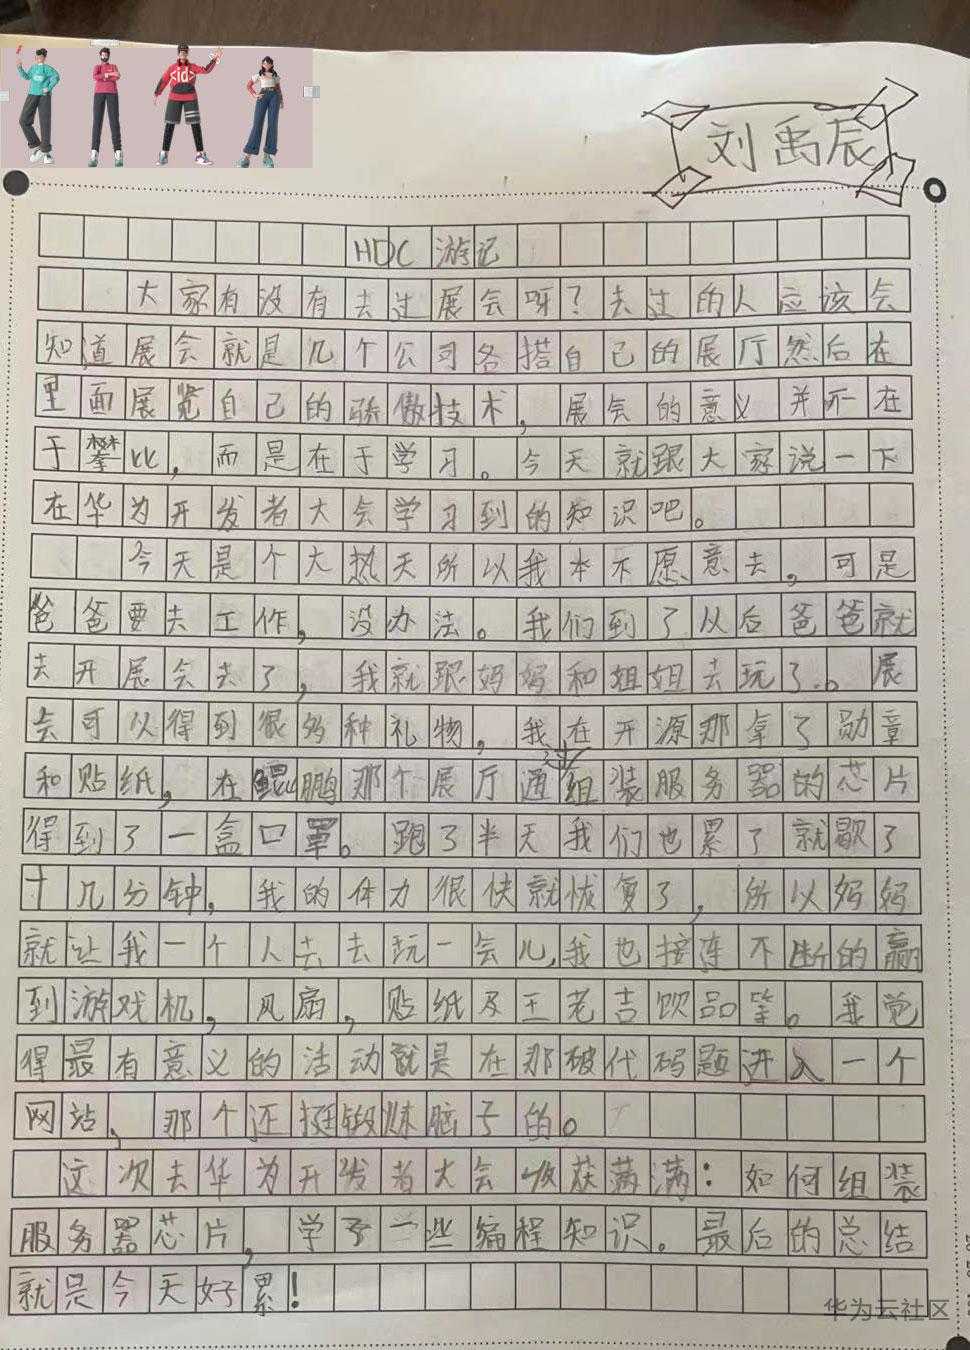 刘禹辰
HDC 游记
大家有没有去过展会呀？去过的人应该会
知道展会就是几个公司各搭自己的展厅然后在
里面展览自己的骄傲技术，展会的意义并不在
于攀比，而是在于学习。今天就跟大家说一下
在华为开发者大会学习到的知识吧。
今天是个大热天所以我本不愿意去，可是
爸爸要去工作，没办法。我们到了以后爸爸就
去开展会去了，我就跟妈妈和姐姐去玩了。展
会可以得到很多种礼物，我在开源那拿了勋章
和贴纸，在鲲鹏那个展厅通过组装服务器的芯片
得到了一盒口罩。跑了半天我们也累了就歇了
十几分钟，我的体力很快就恢复了，所以妈妈
就让我一个人去去玩一会儿，我也接连不断的赢
到游戏机，风扇，贴纸及王老吉饮品等。我觉
得最有意义的活动就是在那破代码题进入一个
网站，那个还挺锻炼脑子的。
这次去华为开发者大会收获满满：如何组装
服务器芯片，学了一些编程知识。最后的总结
就是今天好累！
<id>
华为云社区